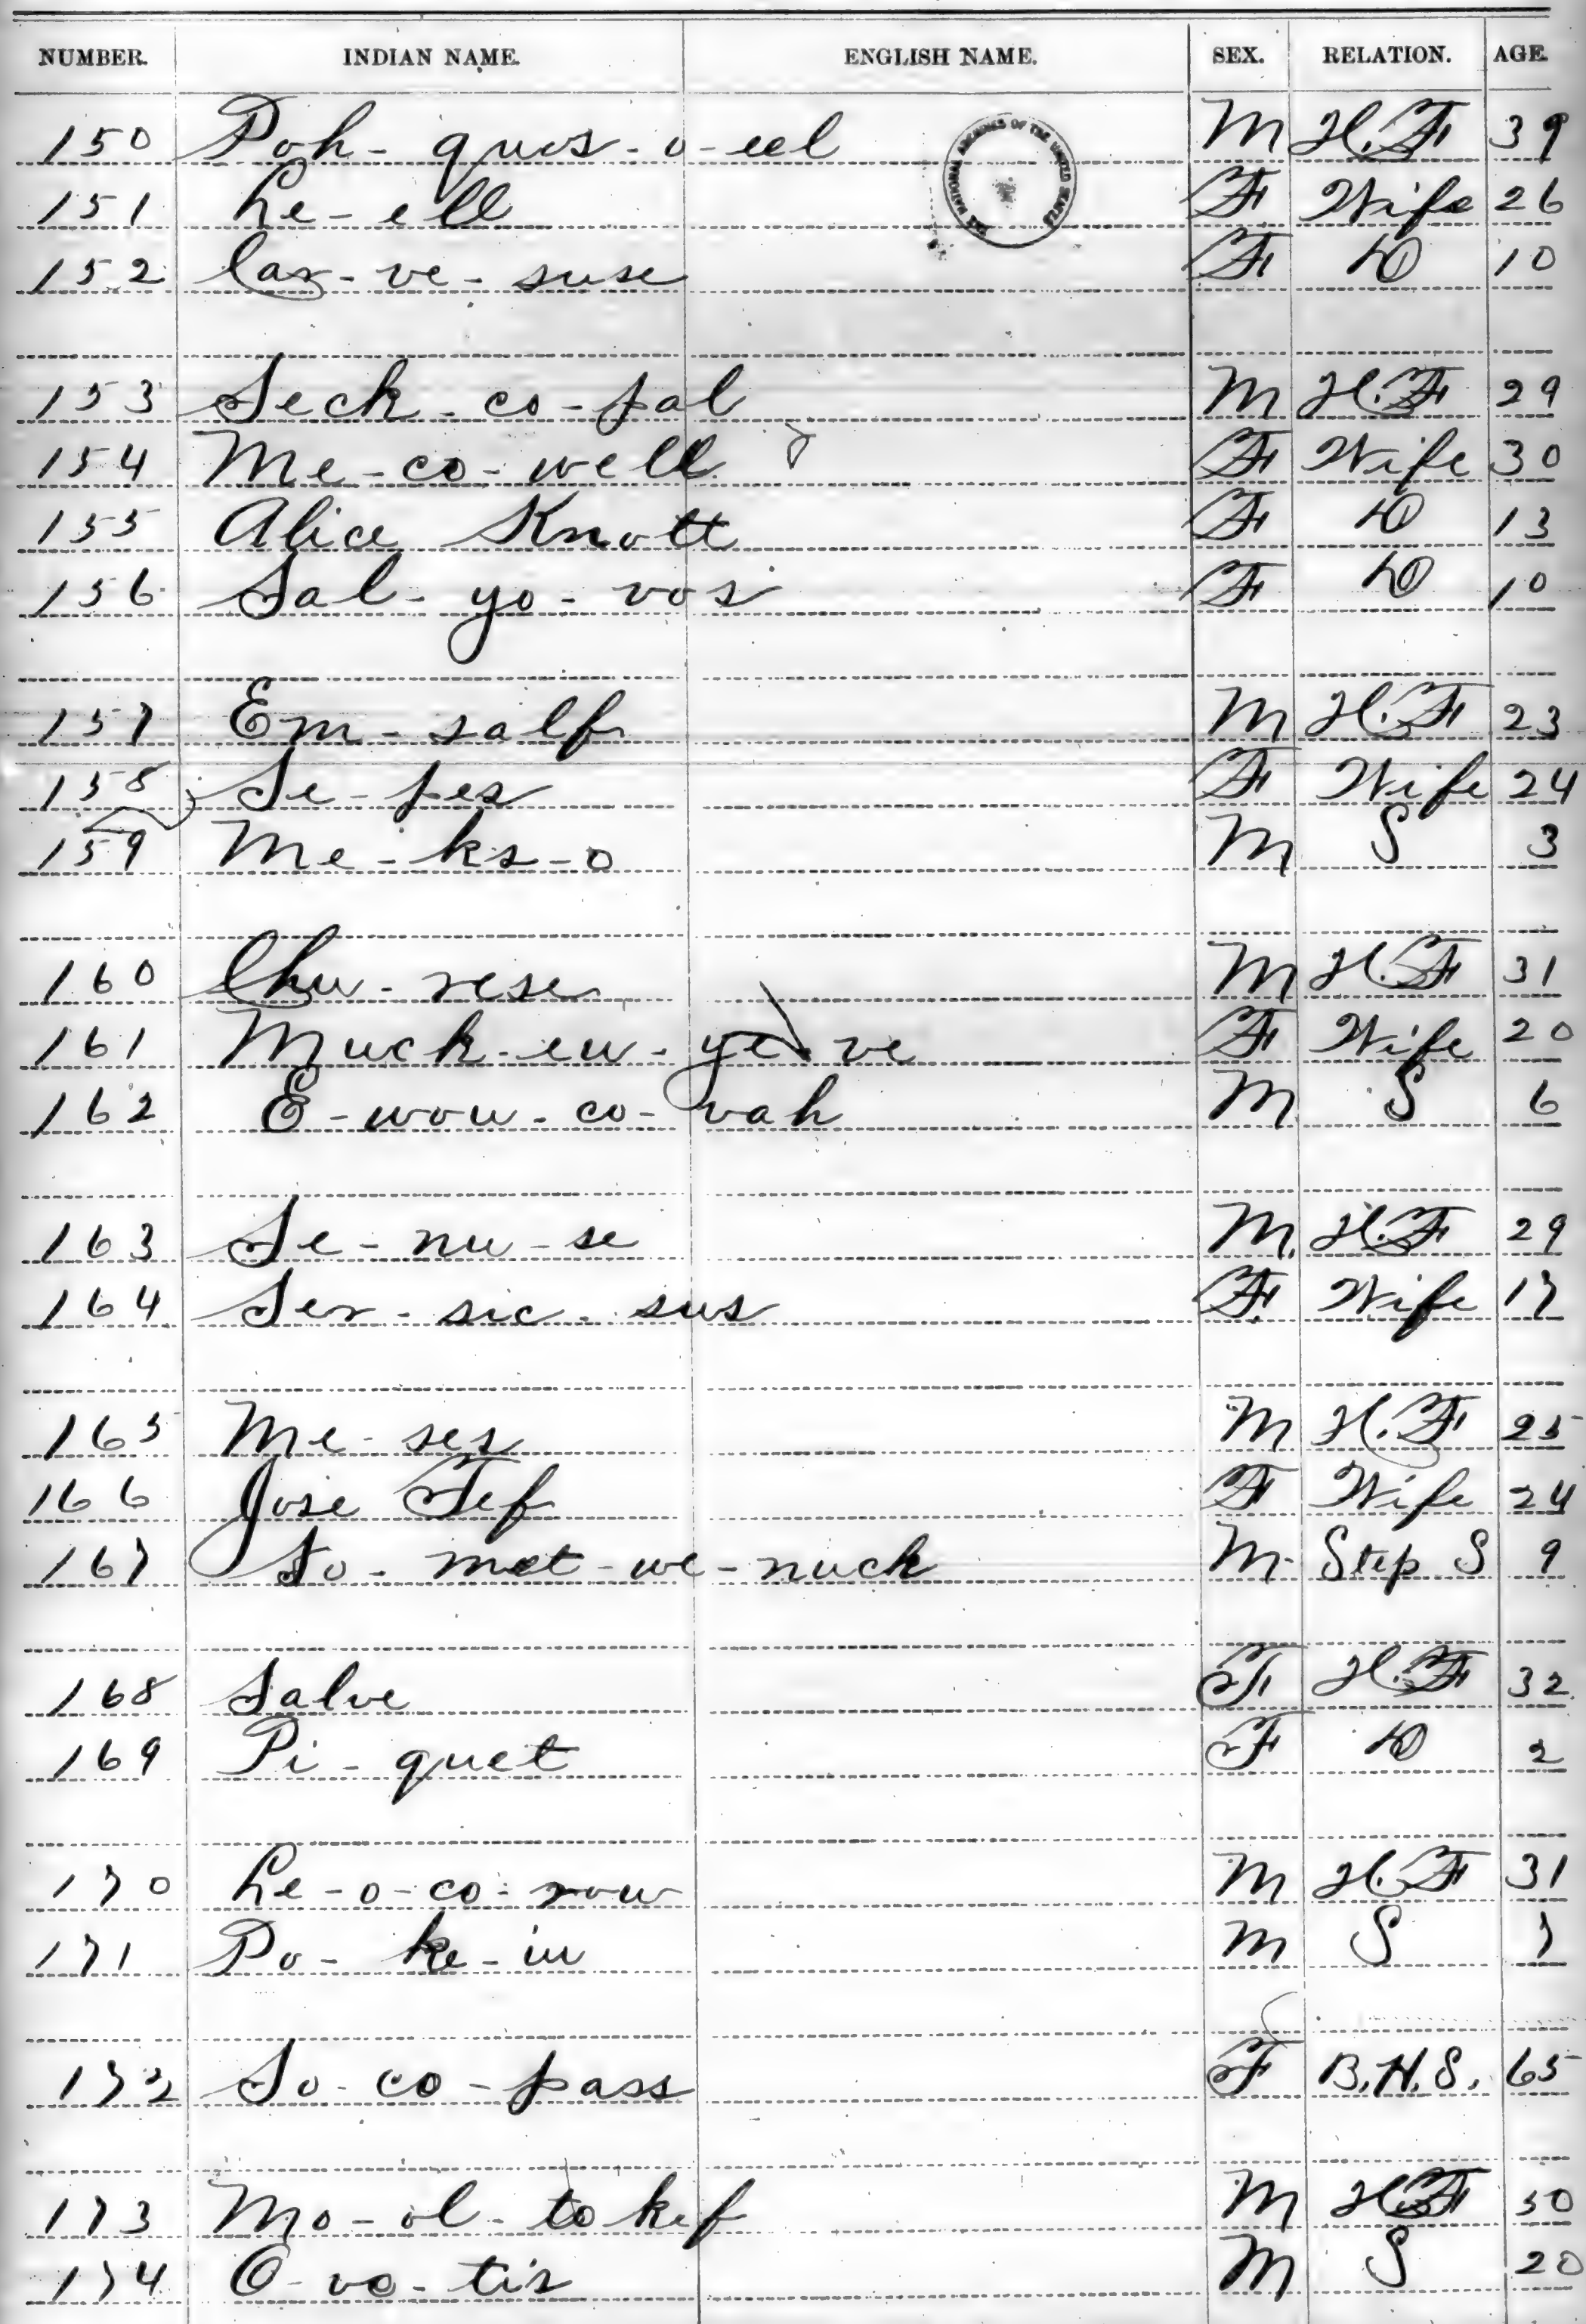 NUMBER. INDIAN NAME. ENGLISH NAME. SEX. RELATION. AGE.
THE NATIONAL ARCHIVES OF THE UNITED STATES
150 Poh-quos-o-eel M H.F 39
151 Le-ell F Wife 26
152 Car-ve-suse F D 10
153 Seck-co-pal M H.F 29
154 Me-co-well F Wife 30
155 Alice Knott F D 13
156 Sal-yo-vos F D 10
157 Em-salf M H.F 23
158 Se-pes F Wife 24
159 Me-ks-o M S 3
160 Chu-rese M H.F 31
161 Muck-eu-ye-ve F Wife 20
162 E-wow-co-vah M S 6
163 Se-nu-se M. H.F 29
164 Ser-sic-sus F. Wife 17
165 Me-ses M H.F 25
166 Jose Tef F Wife 24
167 So-met-we-nuck M Step S 9
168 Salve F H.F 32
169 Pi-quet F D 2
170 Le-o-co-row M H.F 31
171 Po-ke-in M S 7
172 So-co-pass F B.H.S. 65
173 Mo-ol-to kef M H.F 50
174 O-vo-tis M S 20